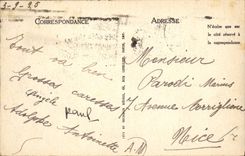 2-9-25
CORRESPONDANCE
ADRESSE
N'écrire que sur
le côté réservé à
la correspondance.
Tout va bien
Grosses caresses
Angèle paul
Adolphe Antoinette
A.M
Monsieur
Parodi
7 Avenue
Nice